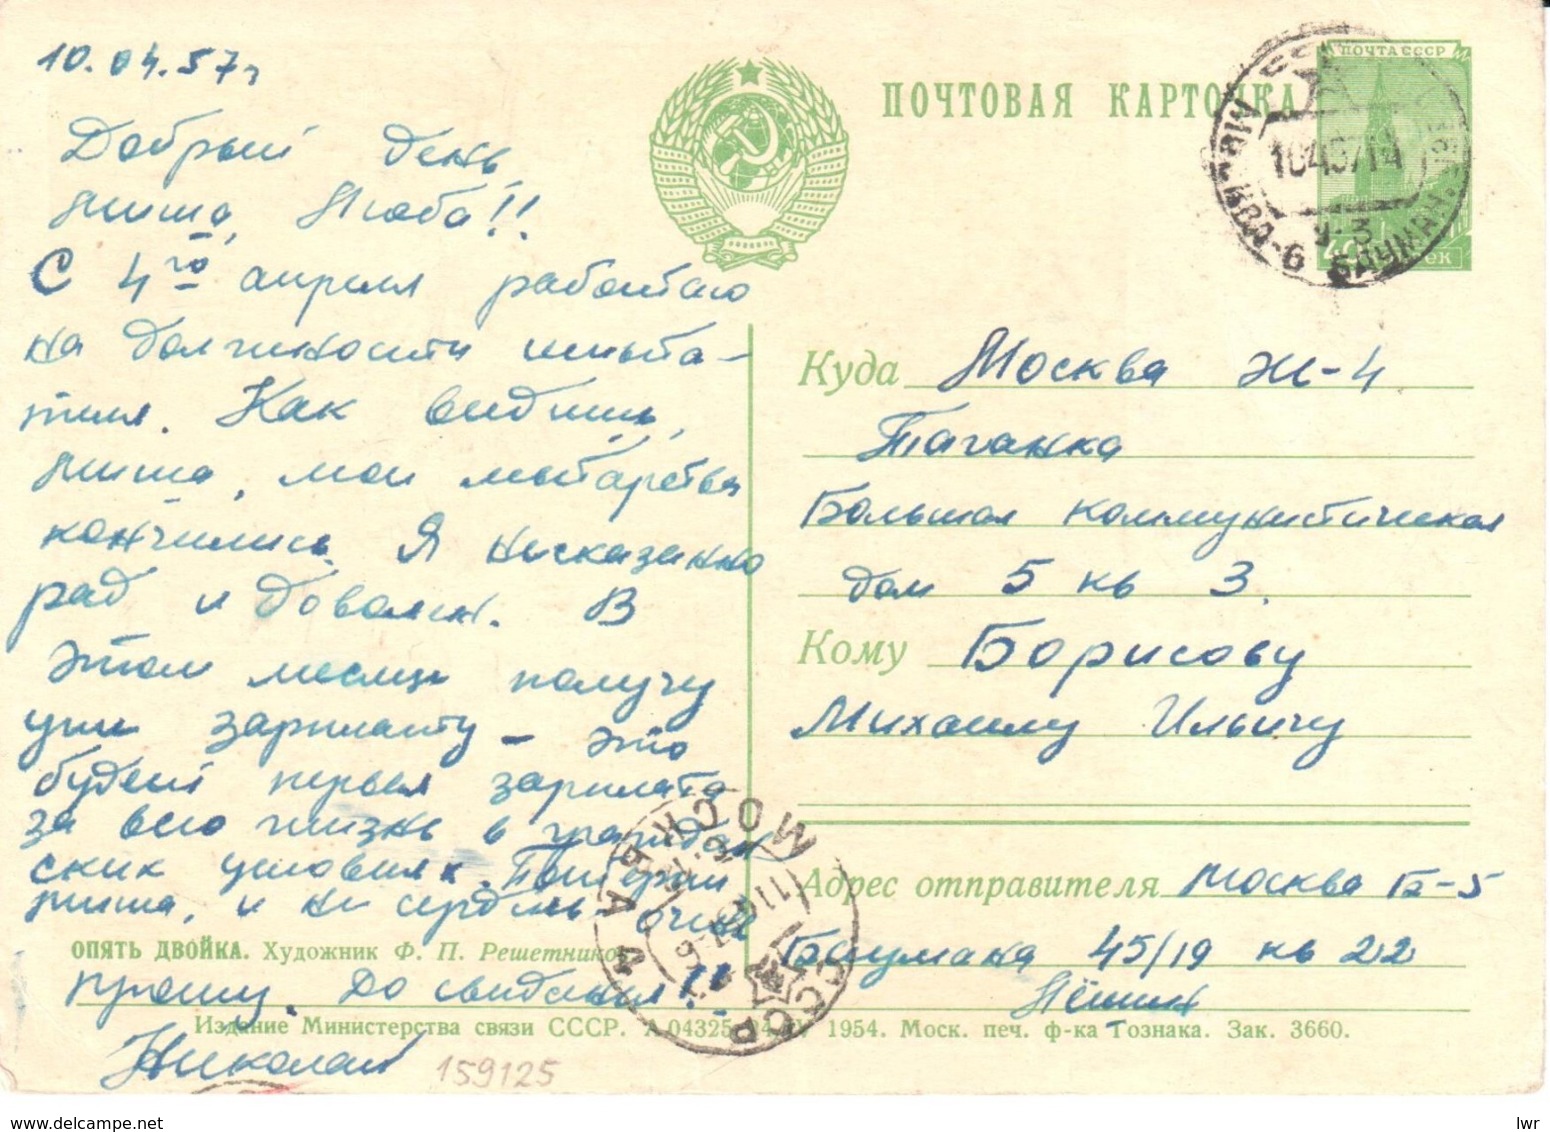 10.04.57г
Добрый день
Миша, Люба!!
С 4го апреля работаю
на должности испыта-
теля. Как видишь,
Миша, мои мытарства
кончились. Я несказанно
рад и доволен. В
этом месяце получу
уже зарплату – это
будет первая зарплата
за всю жизнь в граждан
ских условиях. Потерпи
Миша, и не сердись очень
прошу. До свидания!!
Николай
ПОЧТОВАЯ КАРТОЧКА
ПОЧТА СССР
Куда Москва Ж-4
Таганка
Большая коммунистическая
дом 5 кв 3.
Кому Борисову
Михаилу Ильичу
Адрес отправителя Москва Б-5
Баумана 45/19 кв 22
ОПЯТЬ ДВОЙКА. Художник Ф. П. Решетников
Издание Министерства связи СССР. А 04325 1954. Моск. печ. ф-ка Гознака. Зак. 3660.
159125
МОСКВА
СССР
lwr